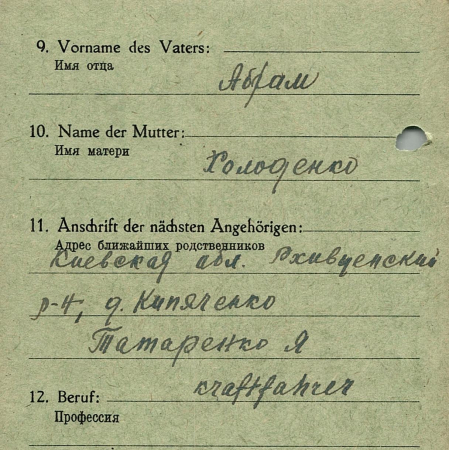 9. Vorname des Vaters:
Имя отца
Абрам
10. Name der Mutter:
Имя матери
Холоденко
11. Anschrift der nächsten Angehörigen:
Адрес ближайших родственников
Киевская обл. Ржищенский
р-н, д. Кипяченко
Татаренко Я
12. Beruf:
kraftfahrer
Профессия